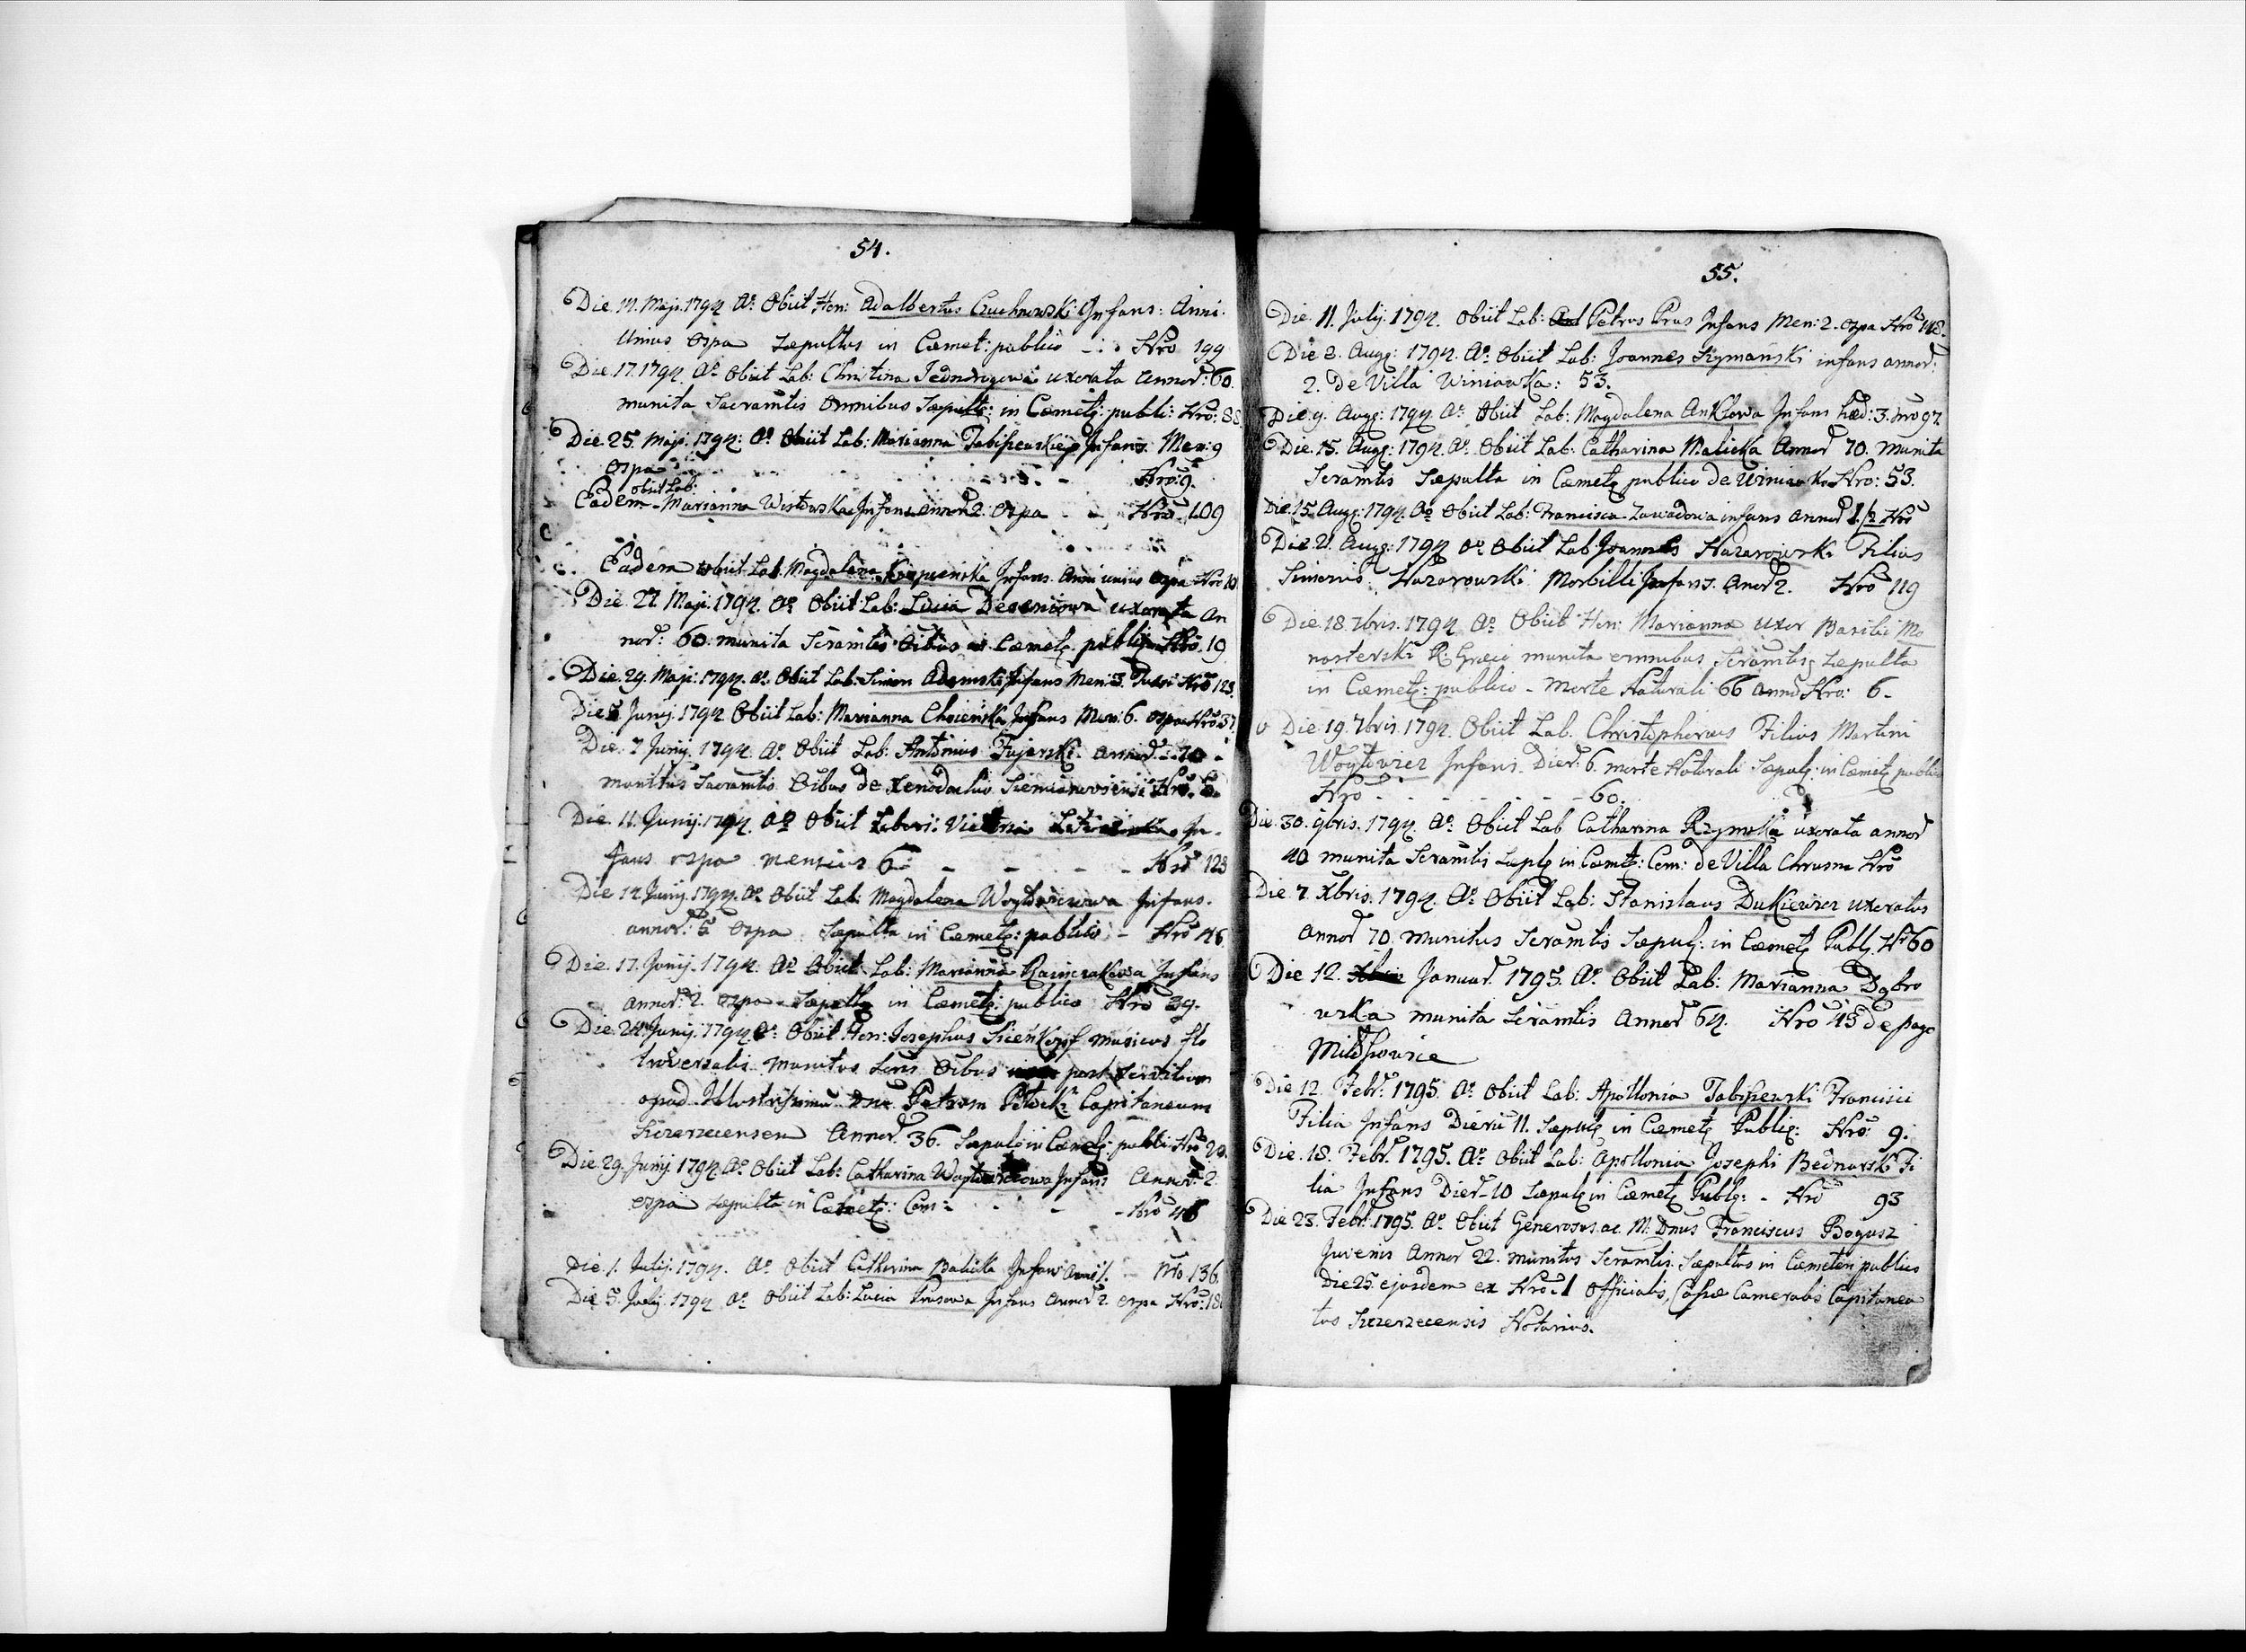 54.
Die 14. Maji. 1794 Aº Obiit Hon: Adalbertus Czuchnowski Infans: Anni
Unius Ospa Sepultus in Cæmet: publico - Nro 199
Die 17. 1794. Aº Obiit Lab: Christina uxorata Annor: 60.
munita Sacramtis Omnibus Sepulta: in Cæmet: publi: Nro: 88
Die 25. Maji. 1794: Aº Obiit Lab: Marianna Infans Men: 9
Ospa Nro: 9.
obiit Lab:
Eadem Marianna Infans annor 2. Ospa - - Nro 109
Eadem obiit Lab. Magdalena Infans. Anni unius Ospa Nro
Die 27 Maji. 1794. Aº Obiit Lab: Lucia uxorata An
nor: 60. munita Scramtis Oibus in Cæmet. publi Nro. 19
Die 29. Maji: 1794. Aº Obiit Lab: Simon Adamski Infans Men: 3. Nro 123.
Die Junij. 1794. Obiit Lab: Marianna Choieńska Infans Men: 6. Ospa Nro 37
Die 7 Junij. 1794. Aº Obiit Lab: Antonius Fujarski Annor: 70 -
munitus Sacramtis Oibus de Xenodochio Siemianovsiensi Nro.
Die 11. Junij. 1794. Aº Obiit Labori: Victoria In-
fans ospa mensiu 6 - - - - Nro 123
Die 14 Junij. 1794. Aº Obiit Lab: Magdalena Infans.
annor: 5 Ospa Sepulta in Cæmet: publico - Nro 46
Die 17. Junij. 1794. Aº Obiit Lab: Marianna Infans
annor: 2. Ospa Sepulta in Cæmet: publico Nro 39.
Die 24 Junij. 1794. Aº Obiit Hon: Josephus musicus flo
traversalis munitus Scris Oibus post servitium
apud Illustrissimu Petrum Potocki Capitaneum
Szczerzecensem Annor. 36. Sepul: in Cæmet: publi Nro 20.
Die 29. Junij 1794. Aº Obiit Lab: Catharina Infans Annor: 2
ospa sepulta in Cæmet: Com: - - Nro 48
Die 1. Julij. 1794. Aº Obiit Catherina Balicka Infans Anni 1. - Nro 136.
Die 5. Julij 1794 Aº Obiit Lab: Lucia Prusowa Infans Annor 2. ospa Nro: 18
55.
Die 11. Julij. 1794. Obiit Lab: Petrus Prus Infans Men: 2. ospa Nro 118.
Die 2. Augg: 1794. Aº Obiit Lab: Joannes Szymański infans annor:
2. De Villa Winiawka: 53.
Die 9. Augg: 1794 Aº Obiit Lab: Magdalena Anklowa Infans hæd: 3. Nro 97.
Die 15. Augg: 1794. Aº Obiit Lab: Catharina Malicka Annor 70. munita
Scramtis Sepulta in Cæmet publico de Winiawka Nro: 53.
Die 15. Augg: 1794. Aº Obiit Lab: Francisca Zawadowa infans annor 1 1/2 Nro
Die 21. Augg: 1794 Aº Obiit Lab Joannes Nazarowski Filius
Simonis Nazarowski Morbilli Infans. Anor 2. Nro 119
Die 18. 7bris. 1794. Aº Obiit Hon: Marianna uxor Basilii Mo
nasterski R. Græci munita omnibus Scramtis Sepulta
in Cæmet: publico - Morte Naturali 66 Annor Nro: 6-
Die 19. 7bris. 1794. Obiit Lab. Christophorus Filius Martini
Woytowicz Infans Dier: 6. morte Naturali Sepul: in Cæmet publico
Nro - - - - - 60.
Die. 30. 9bris. 1794. Aº Obiit Lab Catharina Rzymska uxorata annor
40 munita Scramtis Seplt in Cæmet: Com: de Villa Chrusno Nro
Die 7 Xbris. 1794. Aº Obiit Lab: Stanislaus Dukiewicz uxoratus
Annor 70. munitus Scramtis Sepul: in Cæmet Publ. Nr 60
Die 12. Januar 1795. Aº Obiit Lab: Marianna Dąbro
wska munita Scramtis Annor 64. Nro 43 de pago
Miloszowice
Die 12. Febr: 1795. Aº Obiit Lab: Apollonia Francisci
Filia Infans Dieru 11. Sepul in Cæmet Public: Nro: 9.
Die. 18. Febr. 1795. Aº Obiit Lab: Apollonia Josephi Bednarski Fi
lia Infans Dier-10 Sepul in Cæmet Public: - Nro 93
Die 23. Febr. 1795. Aº Obiit Generosus ac M: Dnus Franciscus Bogusz
Juvenis Annor 22. munitus Scramtis. Sepultus in Cæmeterio publico
Die 25. ejusdem ex Nro. 1 Officialis, Cassæ Cameralis Capitanea
tus Szczerzecensis Notarius.